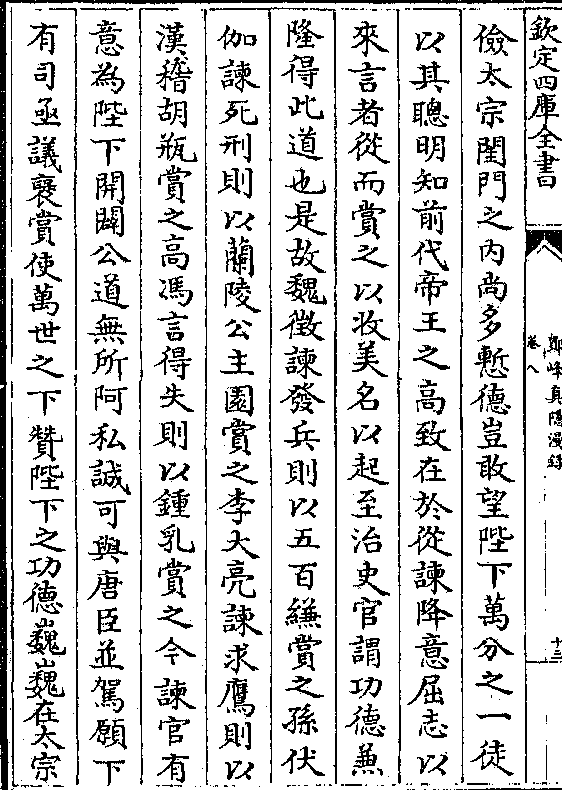 欽定四庫全書
鄮峰真隱漫録
卷八
十三
儉太宗閨門之内尚多慙德豈敢望陛下萬分之一徒
以其聰明知前代帝王之高致在於從諫降意屈志以
來言者從而賞之以收美名以起至治史官謂功德兼
隆得此道也是故魏徵諫發兵則以五百縑賞之孫伏
伽諫死刑則以蘭陵公主園賞之李大亮諫求鷹則以
漢𤬪胡瓶賞之高馮言得失則以鍾乳賞之今諫官有
意為陛下開闢公道無所阿私誠可與唐臣並駕願下
有司亟議襃賞使萬世之下贊陛下之功德巍巍在太宗